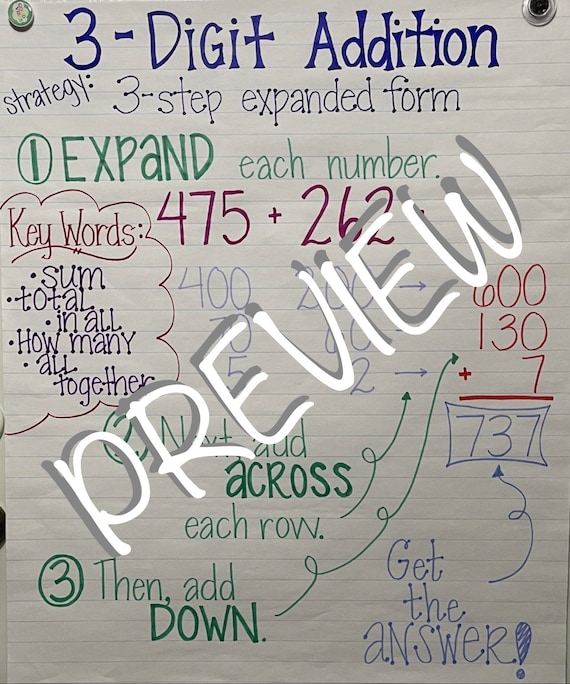 3-Digit Addition
strategy: 3-step expanded form
① EXPAND each number.
475 + 262
Key Words:
• sum
• total
in all
• How many
• all
together
400 200 → 600
70 60 → 130
5 2 → + 7
737
② Next, add
ACROSS
each row.
③ Then, add
DOWN.
Get
the
ANSWER!
PREVIEW